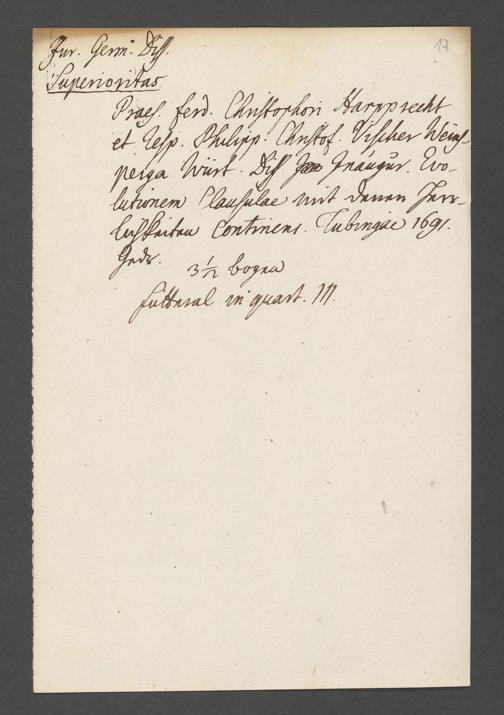 Jur. Germ. Diss.
17
Superioritas
Praes. Ferd. Christophori Harpprecht
et Resp. Philipp. Christof. Vischer Weins-
perga Würt. Diss Inaugur. Evo-
lutionem Clausulae mit denen Herr-
lichkeiten Continens. Tubingae 1691.
Gedr.
3 1/2 bogen
futteral in quart. III.